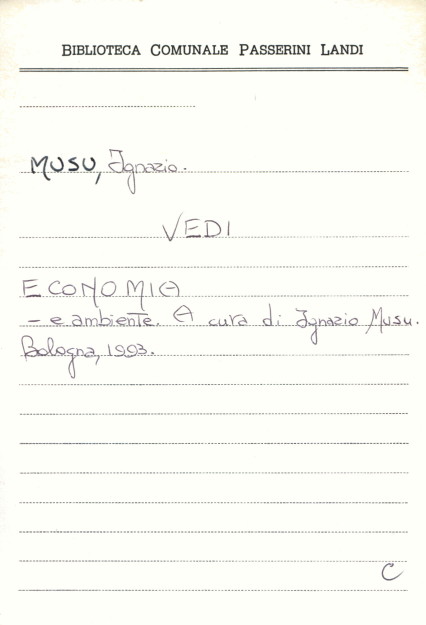 BIBLIOTECA COMUNALE PASSERINI LANDI
MUSU, Ignazio.
VEDI
ECONOMIA
- e ambiente. A cura di Ignazio Musu.
Bologna, 1993.
C